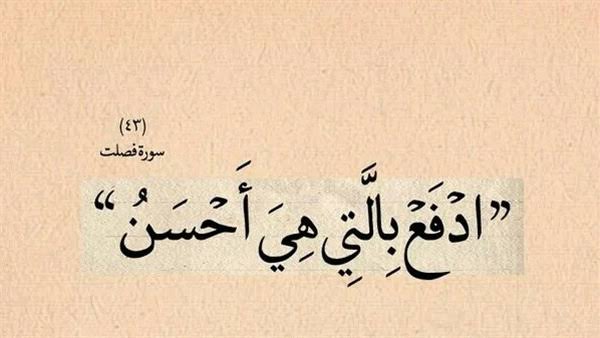 (٤٣)
سورة فصلت
”ادْفَعْ بِالَّتِي هِيَ أَحْسَنُ“